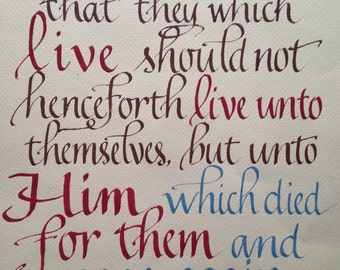 that they which
live should not
henceforth live unto
themselves, but unto
Him which died
for them and